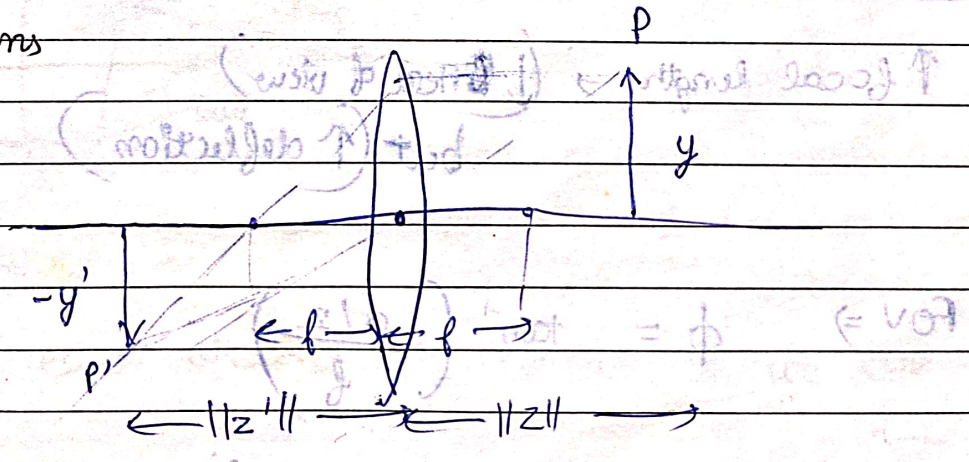 ns
P
y
-y'
f f
P'
||z'|| ||z||